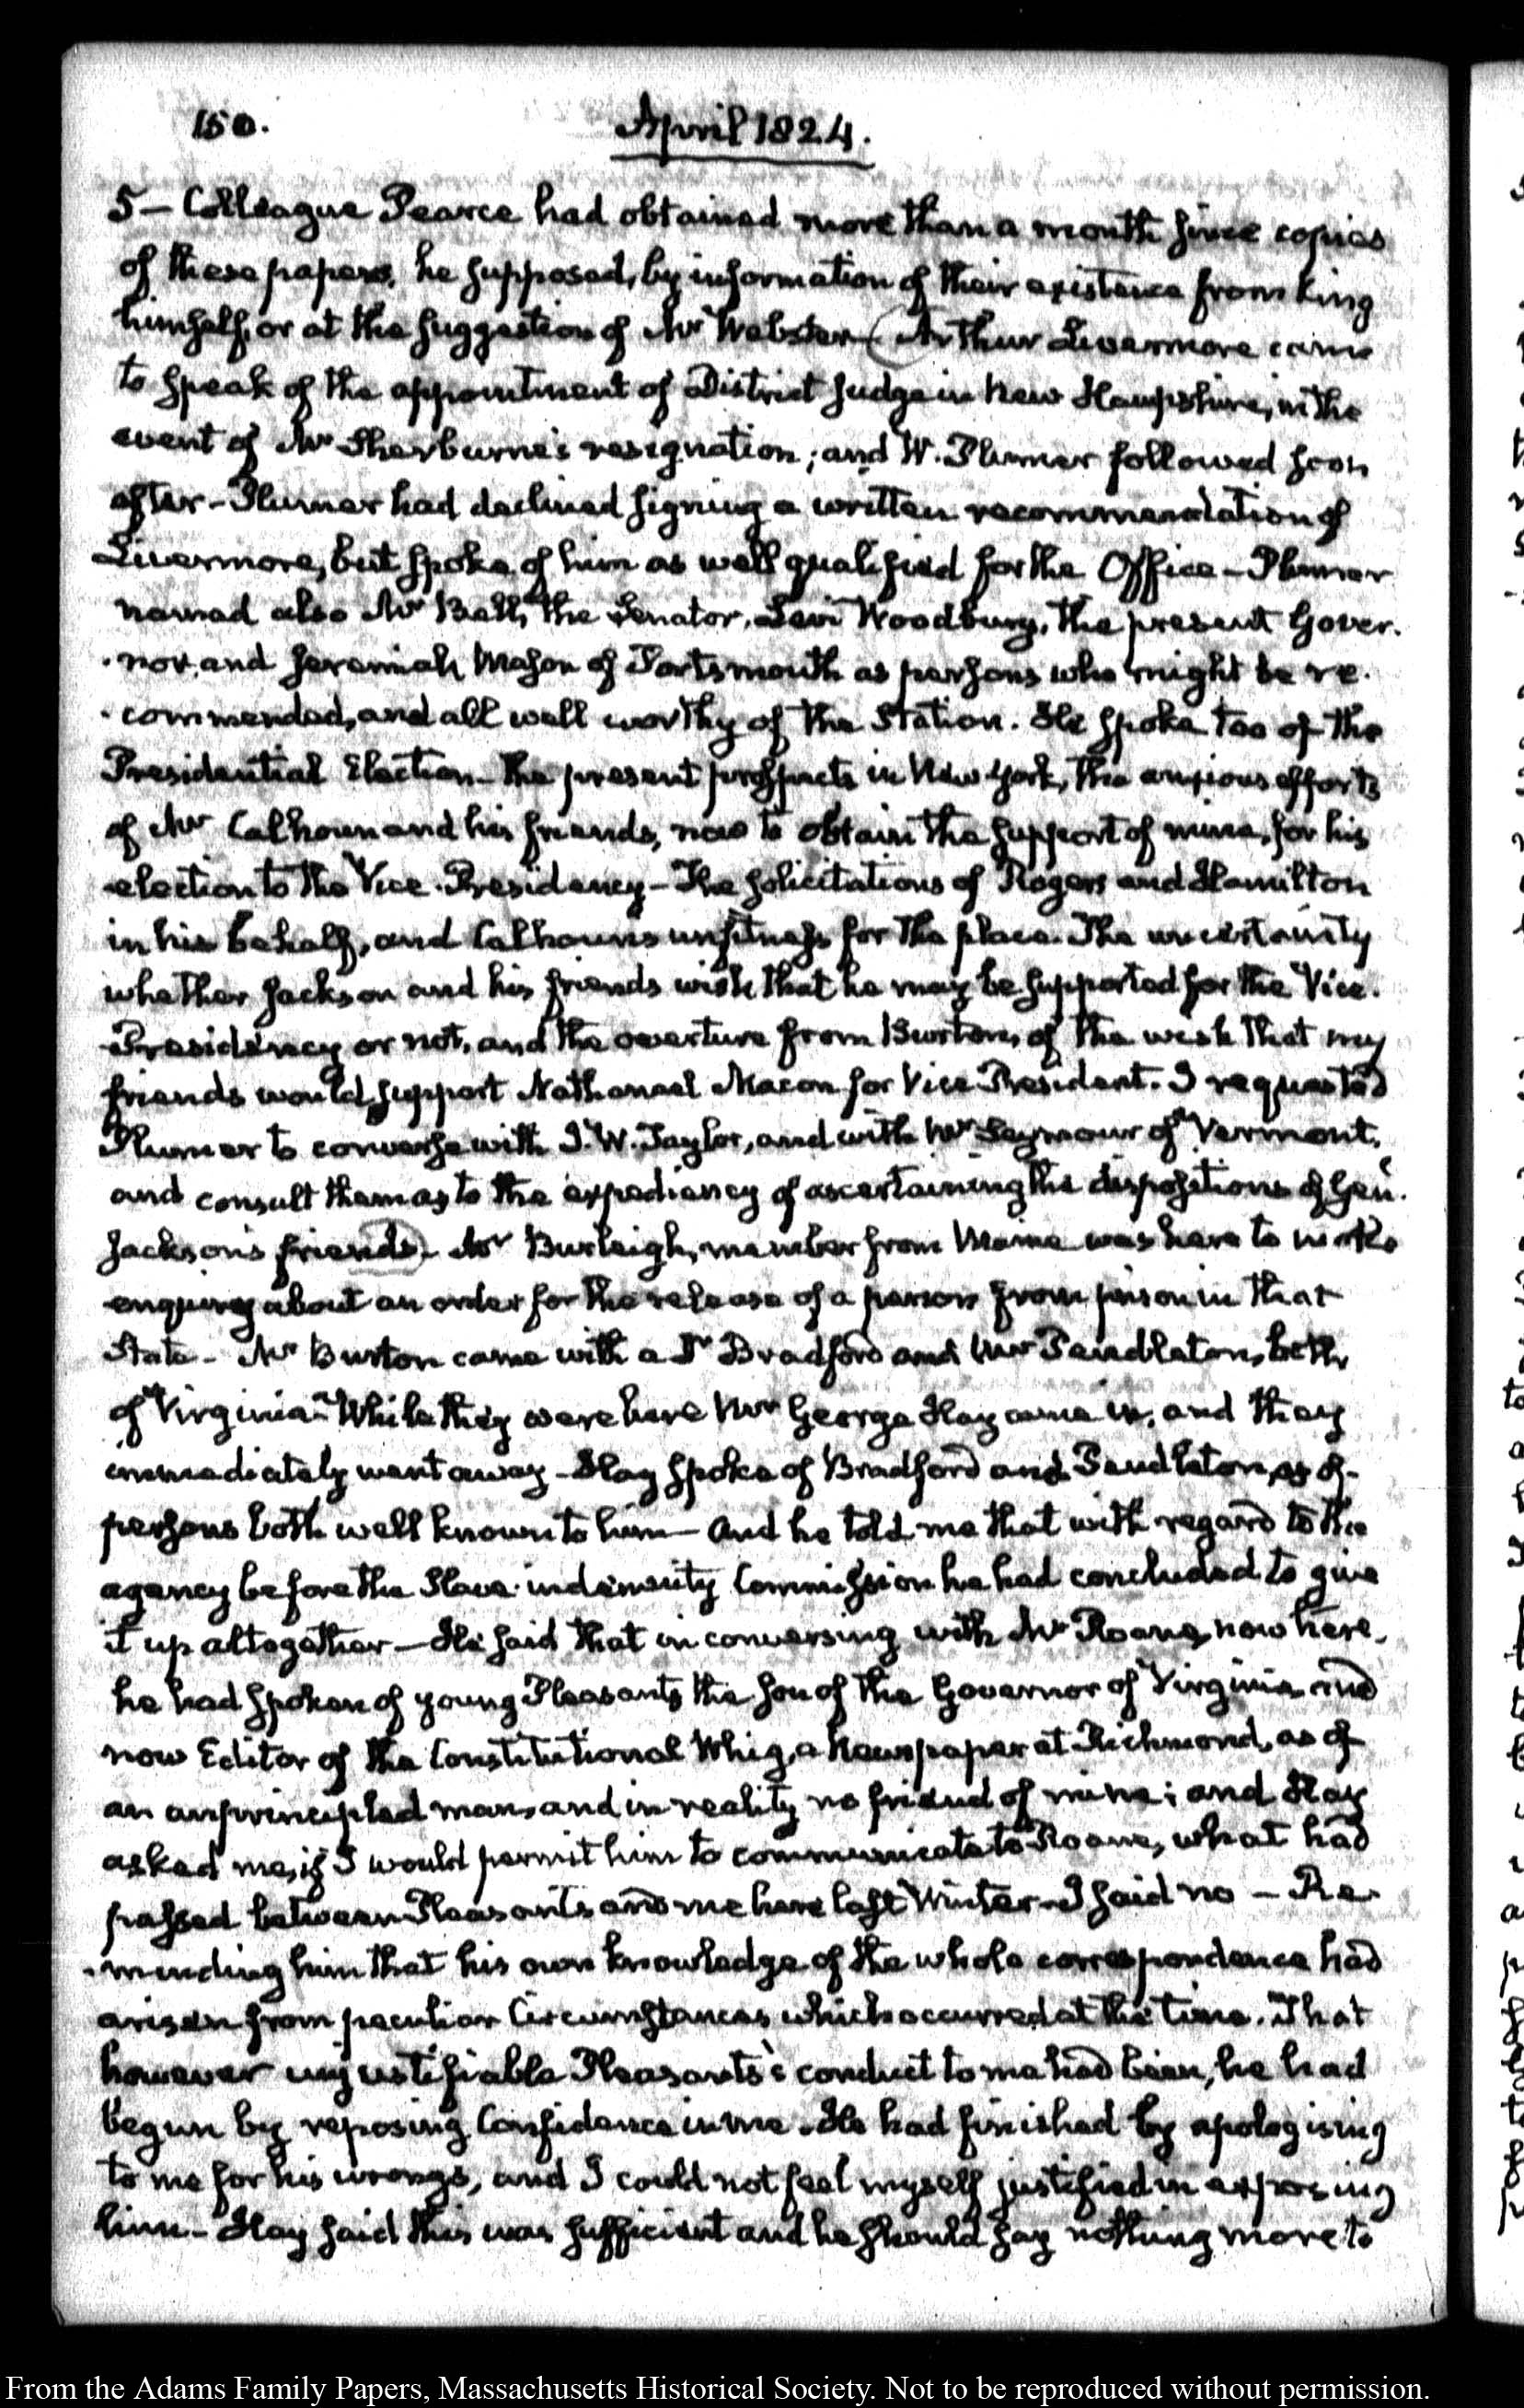 150.
April 1824.
5 — Colleague Pearce had obtained more than a month since copies
of these papers, he supposed, by information of their existence from King
himself, or at the suggestion of Mr Webster — (Arthur Livermore came
to speak of the appointment of District Judge in New Hampshire, in the
event of Mr Sherburne's resignation; and W. Plumer followed soon
after – Plumer had declined signing a written recommendation of
Livermore, but spoke of him as well qualified for the Office – Plumer
named also Mr Bell, the Senator, Levi Woodbury, the present Gover-
-nor, and Jeremiah Mason of Portsmouth as persons who might be re-
-commended, and all well worthy of the Station. He spoke too of the
Presidential Election – The present prospects in New York, the anxious efforts
of Mr Calhoun and his friends, now to obtain the support of mine, for his
election to the Vice-Presidency – The solicitations of Rogers and Hamilton
in his behalf, and Calhoun's unfitness for the place. The uncertainty
whether Jackson and his friends wish that he may be supported for the Vice-
Presidency or not, and the overture from Burton, of the wish that my
friends would support Nathanael Macon for Vice President. I requested
Plumer to converse with J. W. Taylor, and with Mr Seymour of Vermont,
and consult them as to the expediency of ascertaining the dispositions of Genl.
Jackson's friends) – Mr Burleigh, member from Maine was here to make
enquiry about an order for the release of a person from prison in that
State – Mr Burton came with a Dr Bradford and Mr Pendleton, both
of Virginia – While they were here Mr George Hay came in, and they
immediately went away – Hay spoke of Bradford and Pendleton, as of
persons both well known to him — And he told me that with regard to the
agency before the Slave-indemnity Commission he had concluded to give
it up altogether — He said that in conversing with Mr Roane, now here,
he had spoken of young Pleasants the son of the Governor of Virginia and
now Editor of the Constitutional Whig, a Newspaper at Richmond, as of
an unprincipled man, and in reality no friend of mine; and Hay
asked me, if I would permit him to communicate to Roane, what had
passed between Pleasants and me here last Winter – I said no – Re-
-minding him that his own knowledge of the whole correspondence had
arisen from peculiar Circumstances which occurred at the time. That
however unjustifiable Pleasants's conduct to me had been, he had
begun by reposing Confidence in me. He had finished by apologising
to me for his wrongs, and I could not feel myself justified in exposing
him – Hay said this was sufficient and he should say nothing more to
From the Adams Family Papers, Massachusetts Historical Society. Not to be reproduced without permission.